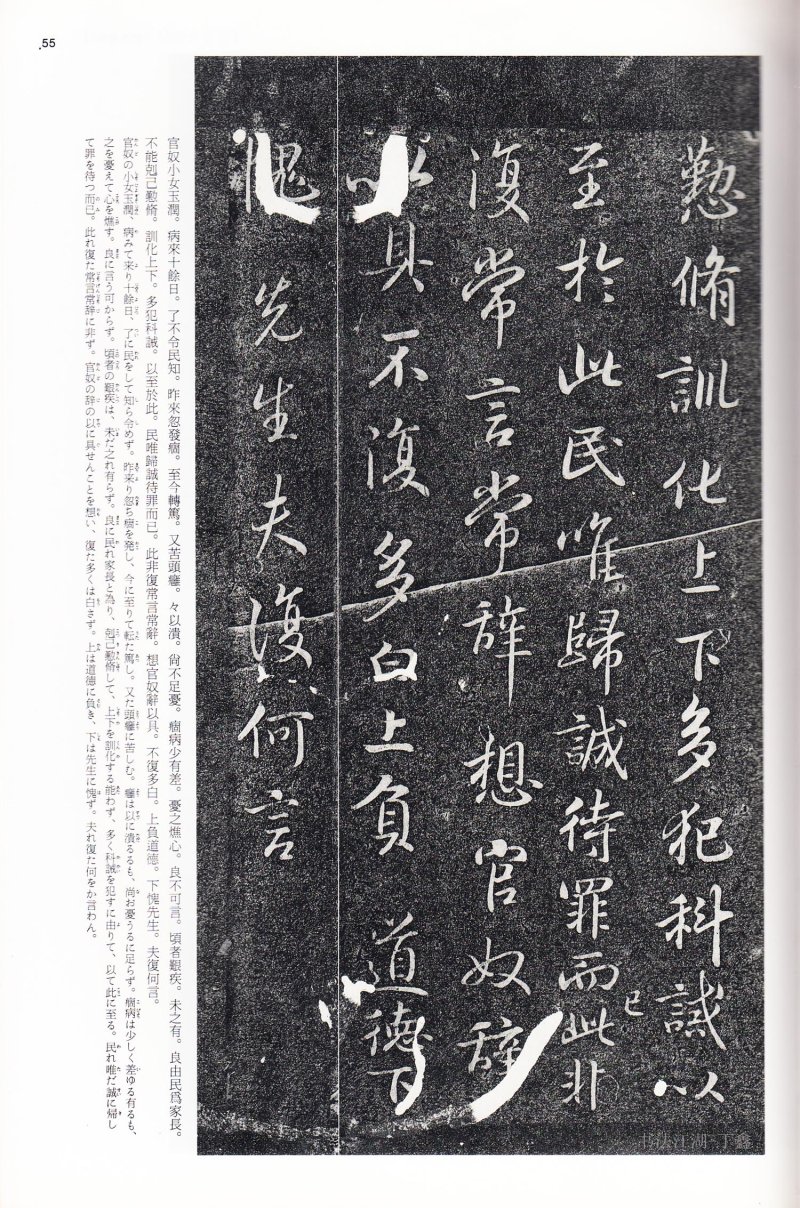 55
懃脩訓化上下多犯科誡以
至於此民唯歸誠待罪而已此非
復常言常辭想官奴辭
以具不復多白上負道德下
愧先生夫復何言
官奴小女玉潤。病來十餘日。了不令民知。昨來忽發痼。至今轉篤。又苦頭癰。々以潰。尚不足憂。痼病少有差。憂之燋心。良不可言。頃者艱疾。未之有。良由民爲家長。
不能剋己懃脩。訓化上下。多犯科誡。以至於此。民唯歸誠待罪而已。此非復常言常辭。想官奴辭以具。不復多白。上負道德。下愧先生。夫復何言。
官奴の小女玉潤、病みて来り十餘日、了に民をして知ら令めず。昨来り忽ち痼を発し、今に至りて転た篤し。又た頭癰に苦しむ。癰は以に潰るるも、尚お憂うるに足らず。痼病は少しく差ゆる有るも、
之を憂えて心を燋す。良に言う可からず。頃者の艱疾は、未だ之れ有らず。良に民れ家長と為り、剋己懃脩して、上下を訓化する能わず、多く科誡を犯すに由りて、以て此に至る。民れ唯だ誠に帰し
て罪を待つ而已。此れ復た常言常辞に非ず。官奴の辞の以に具せんことを想い、復た多くは白さず。上は道德に負き、下は先生に愧ず。夫れ復た何をか言わん。
书法江湖 丁鑫